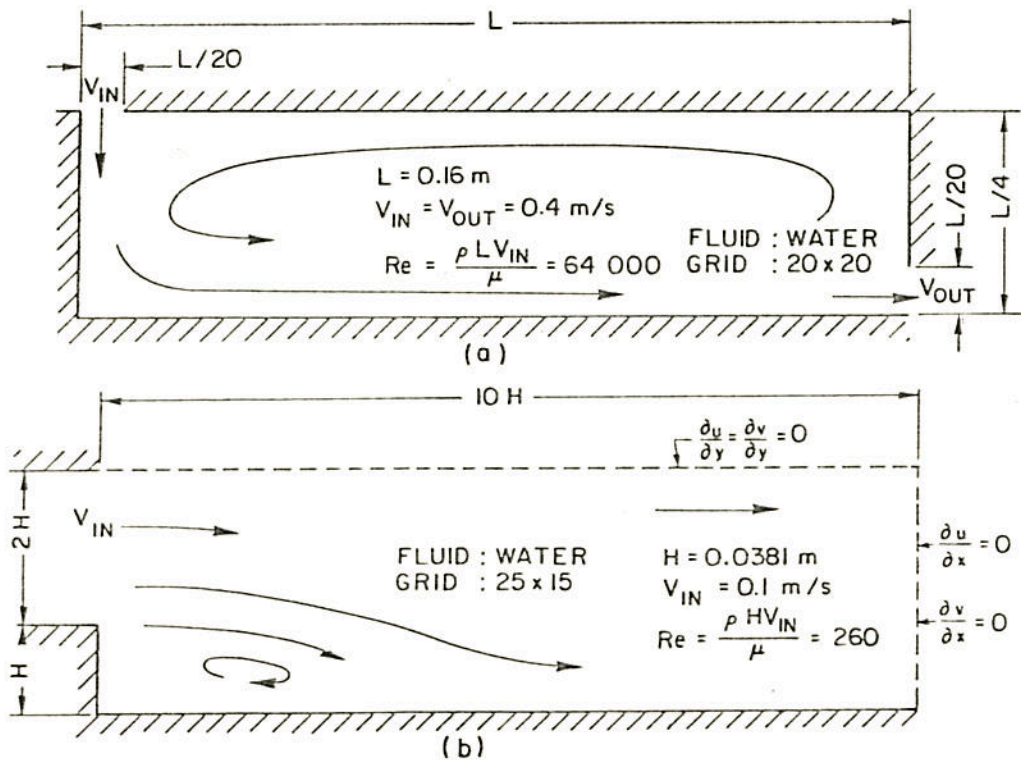 L
L/20
V_IN
L = 0.16 m
V_IN = V_OUT = 0.4 m/s
Re = ρ L V_IN / μ = 64 000
FLUID : WATER
GRID : 20 x 20
L/20
L/4
V_OUT
(a)
10 H
∂u/∂y = ∂v/∂y = 0
2H
V_IN
FLUID : WATER
GRID : 25 x 15
H = 0.0381 m
V_IN = 0.1 m/s
Re = ρ HV_IN / μ = 260
∂u/∂x = 0
∂v/∂x = 0
H
(b)